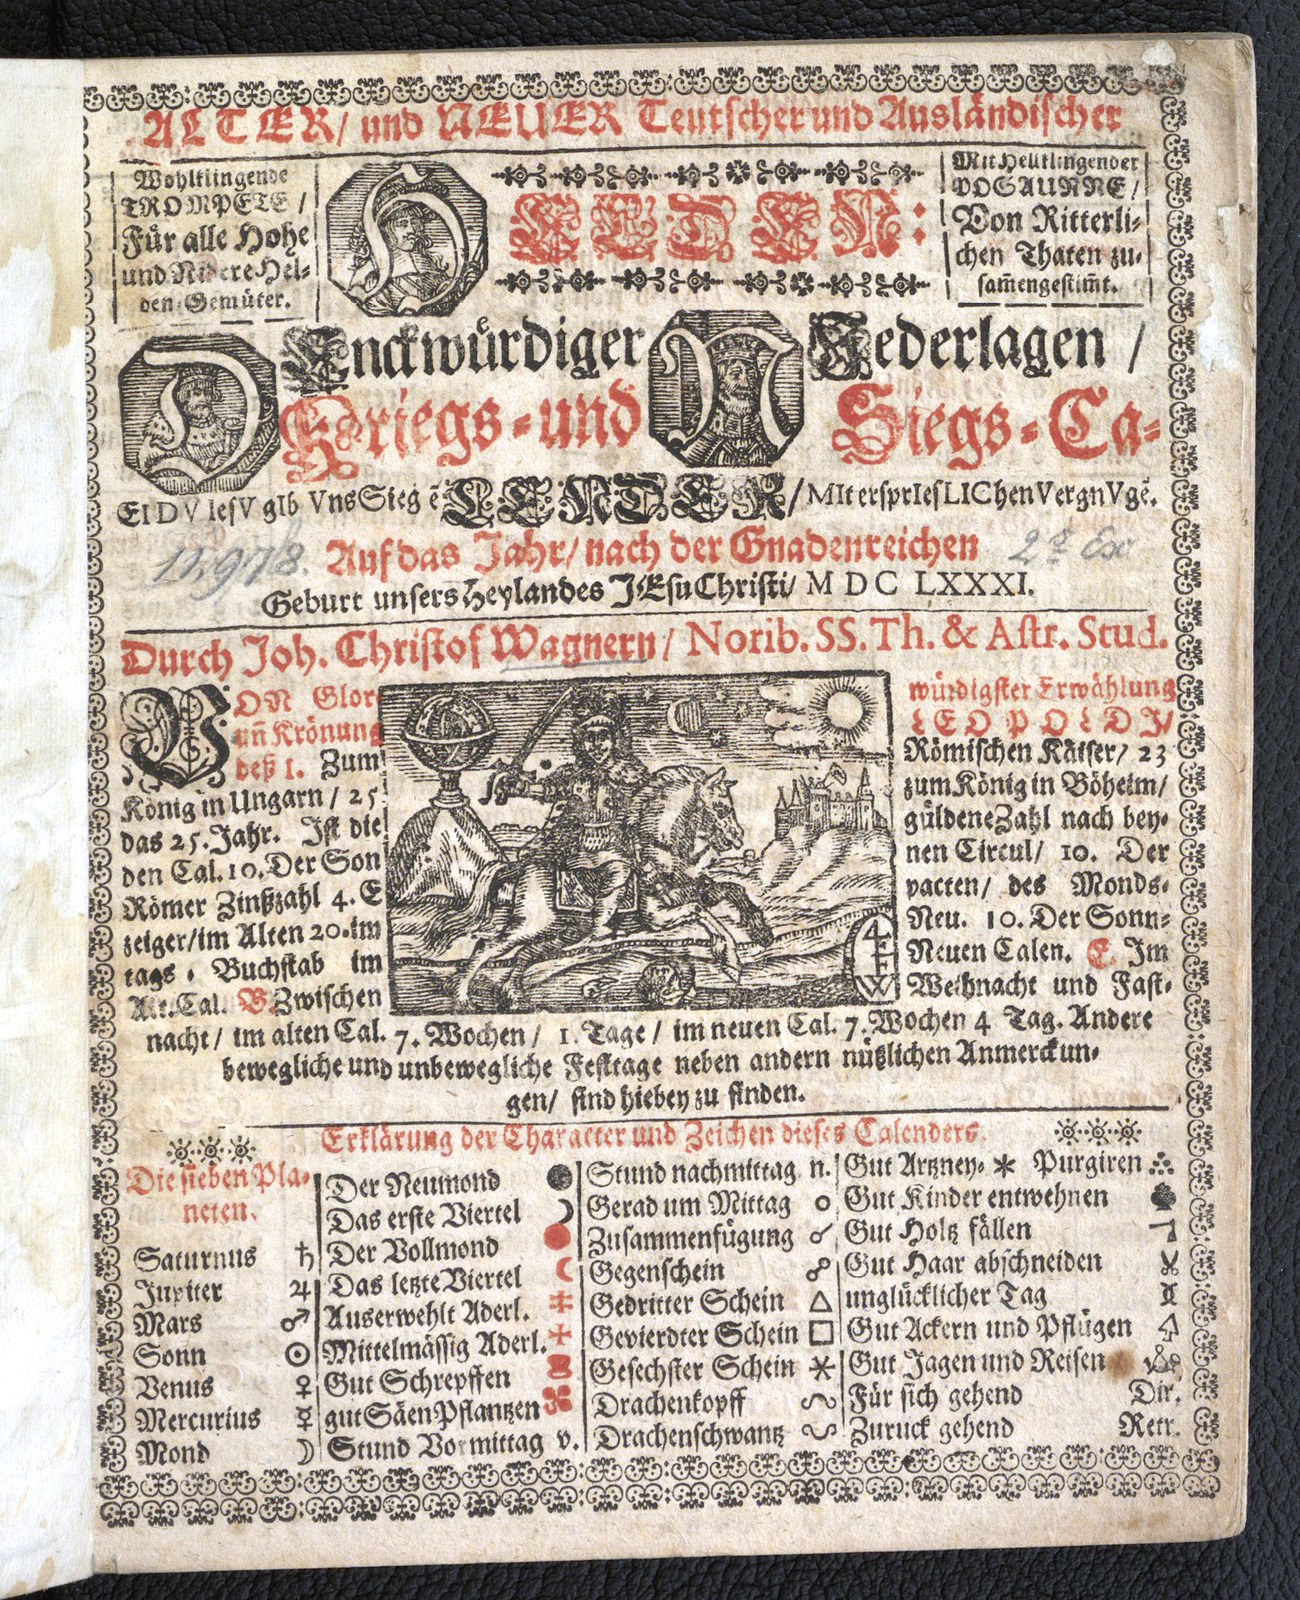 ALTER/ und NEUER Teutscher und Ausländischer
Wohlklingende
TROMPETE /
Für alle Hohe
und Nidere Hel-
den-Gemüter.
HELDEN:
Mit Hellklingender
POSAUNNE/
Von Ritterli-
chen Thaten zu-
sam̃engestim̃t.
DEnckwürdiger NIederlagen /
Kriegs-und Siegs-Ca-
EI DV IesV gIb VnsSieg ẽ LENDER/ MIt ersprIesLIChen VergnVgẽ.
11,978. Auf das Jahr/ nach der Gnadenreichen 2s Ex
Geburt unsers Heylandes JEsu Christi/ M DC LXXXI.
Durch Joh. Christof Wagnern / Norib. SS. Th. & Astr. Stud.
VON Glor
un̄ Krönung
deß I. Zum
König in Ungarn / 25
das 25. Jahr. Ist die
den Cal. 10. Der Son
Römer Zinßzahl 4. E
zeiger/im Alten 20. im
tags . Buchstab im
Alt. Cal. B. Zwischen
würdigster Erwählung
LEOPOLDI/
Römischen Käiser/ 23
zum König in Böheim/
güldene Zahl nach bey-
nen Circul/ 10. Der
pacten/ des Monds-
Neu. 10. Der Sonn-
Neuen Calen. E. Im
Weihnacht und Fast-
nacht / im alten Cal. 7. Wochen/ 1. Tage / im neuen Cal. 7. Wochen 4 Tag. Andere
bewegliche und unbewegliche Festtage neben andern nützlichen Anmerckun-
gen/ sind hiebey zu finden.
Erklärung der Character und Zeichen dieses Calenders.
Die sieben Pla-
neten.
Saturnus ♄
Jupiter ♃
Mars ♂
Sonn ☉
Venus ♀
Mercurius ☿
Mond ☽
Der Neumond
Das erste Viertel
Der Vollmond
Das letzte Viertel
Auserwehlt Aderl.
Mittelmässig Aderl.
Gut Schrepffen
gut Säen Pflantzen
Stund Vormittag v.
Stund nachmittag n.
Gerad um Mittag o
Zusammenfügung ☌
Gegenschein ☍
Gedritter Schein △
Gevierdter Schein □
Gesechster Schein ⚹
Drachenkopff ☊
Drachenschwantz ☋
Gut Artzney- ⚹ Purgiren ∴
Gut Kinder entwehnen
Gut Holtz fällen
Gut Haar abschneiden
unglücklicher Tag
Gut Ackern und Pflügen
Gut Jagen und Reisen
Für sich gehend Dir.
Zuruck gehend Retr.